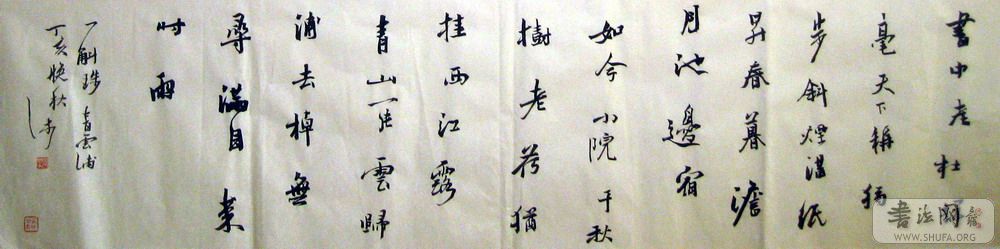 書中老杜
毫天下稱獨
步斜煙湛紙
昇春暮澹
月池邊宿
如今小院千秋
樹老荷猶
挂西江露
青山一片雲歸
浦去棹無
尋滿目菜
时雨
一斛珠 青雲浦
丁亥晚秋 步
書法网
WWW.SHUFA.ORG